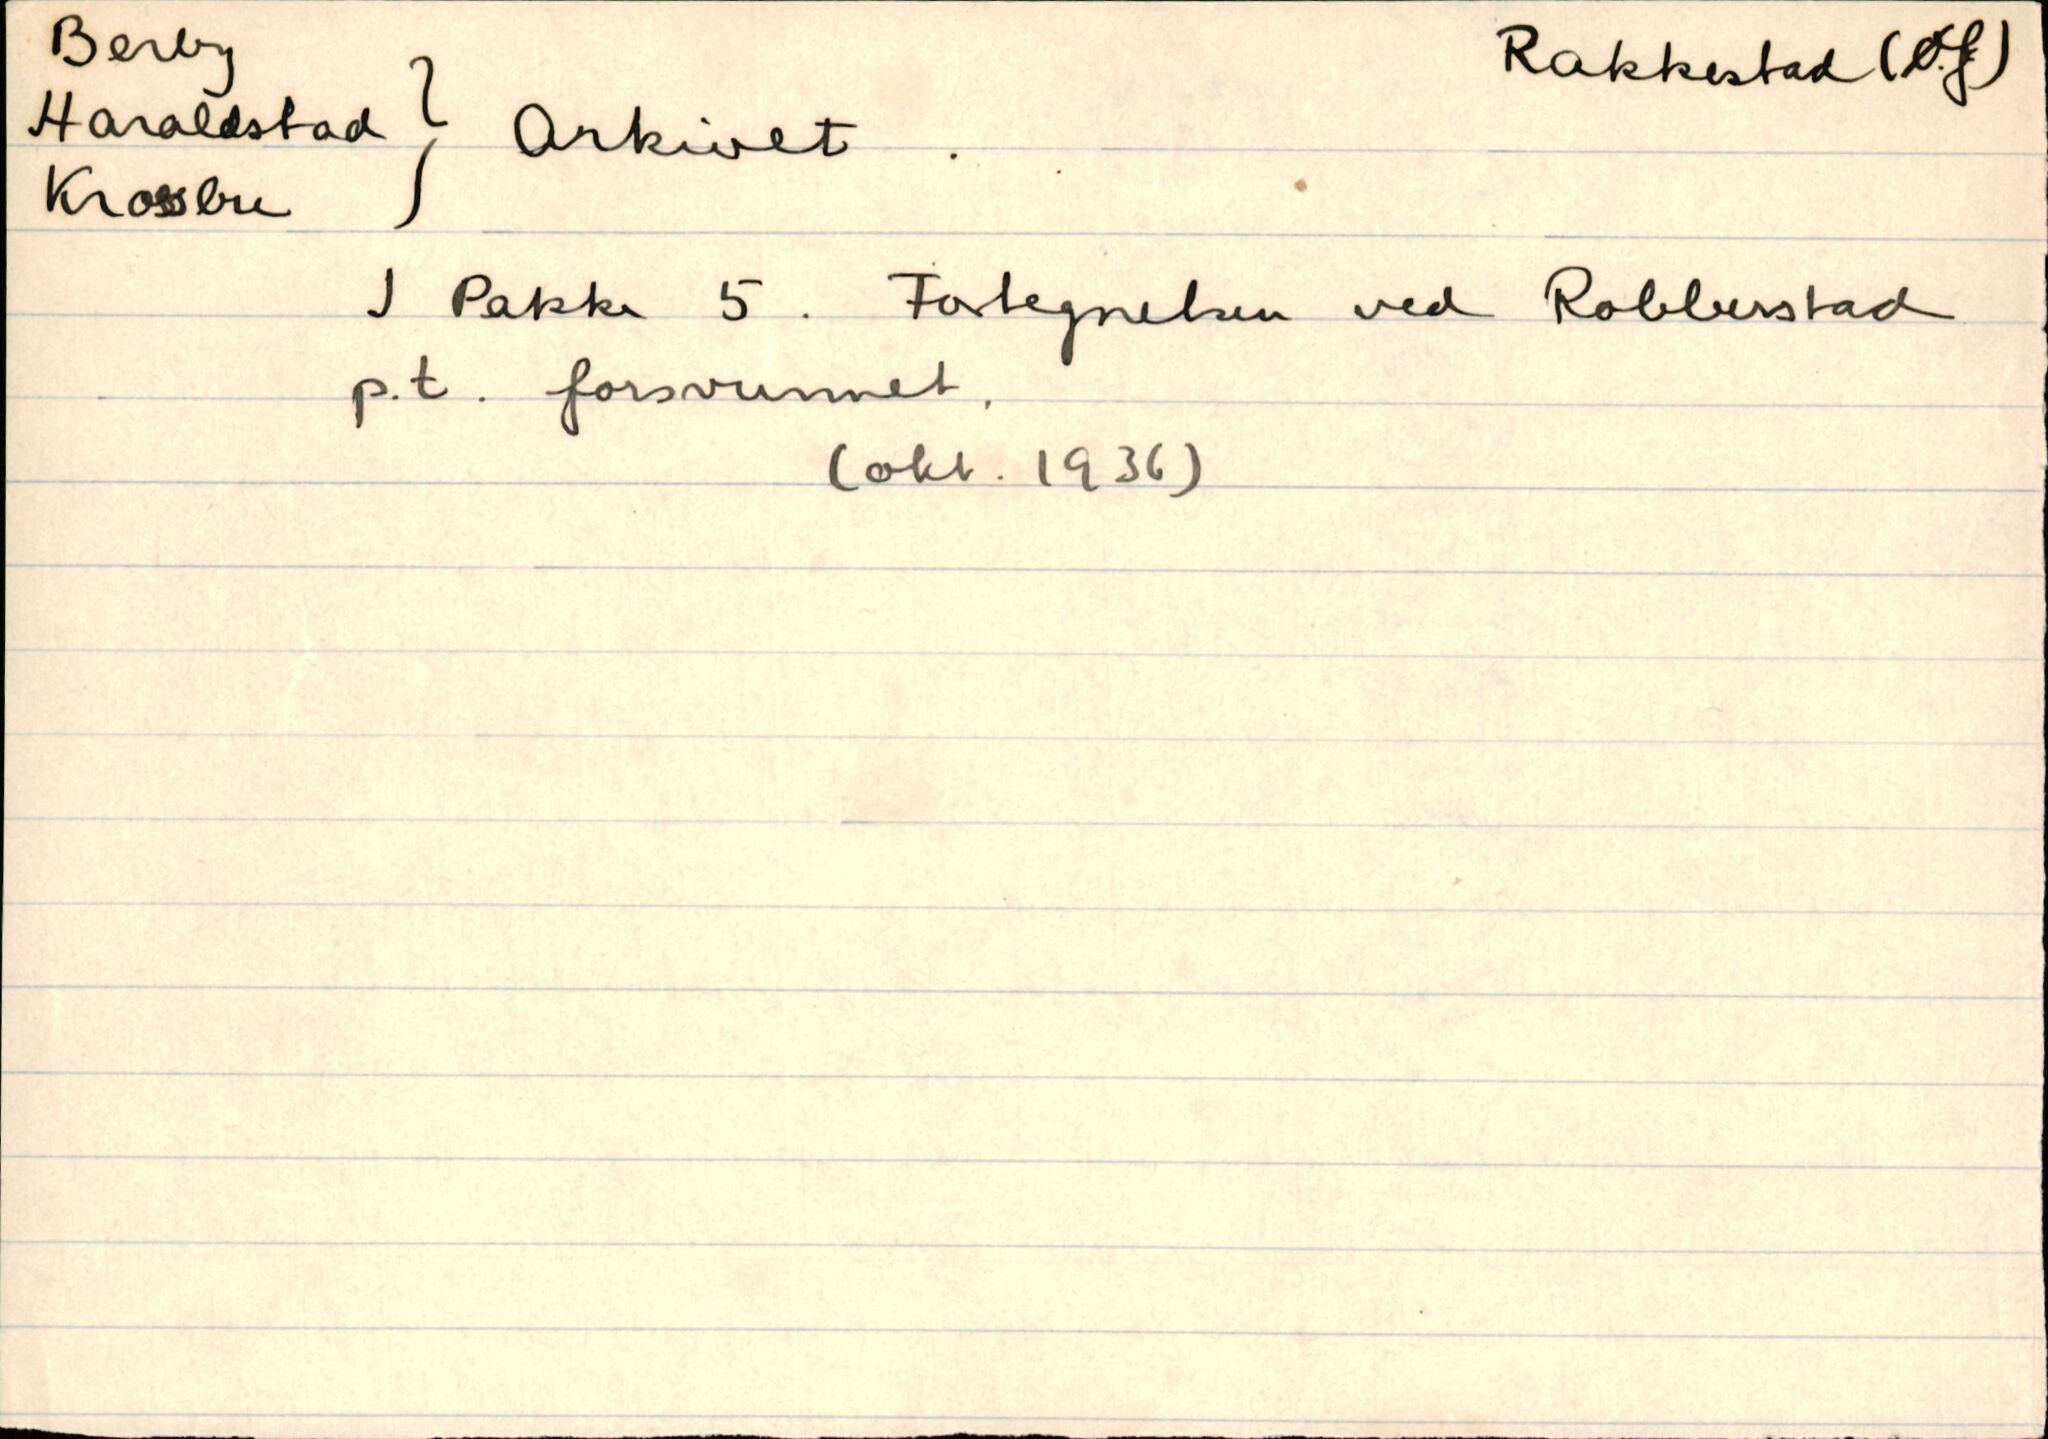 Berby
Rakkestad (Ø.f)
Haraldstad } Arkivet.
Krossbu
I Pakke 5. Fortegnelsen ved Robberstad
p.t. forsvunnet.
(okt. 1936)